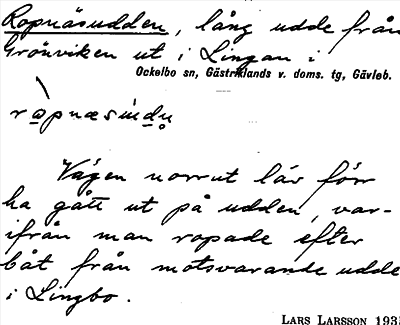 Ropnäsudden, lång udde från
Grönviken ut i Lingan i
Ockelbo sn, Gästriklands v. doms. tg, Gävleb.
Vägen norrut lär förr
ha gått ut på udden, var-
ifrån man ropade efter
båt från motsvarande udde
i Lingbo.
LARS LARSSON 193